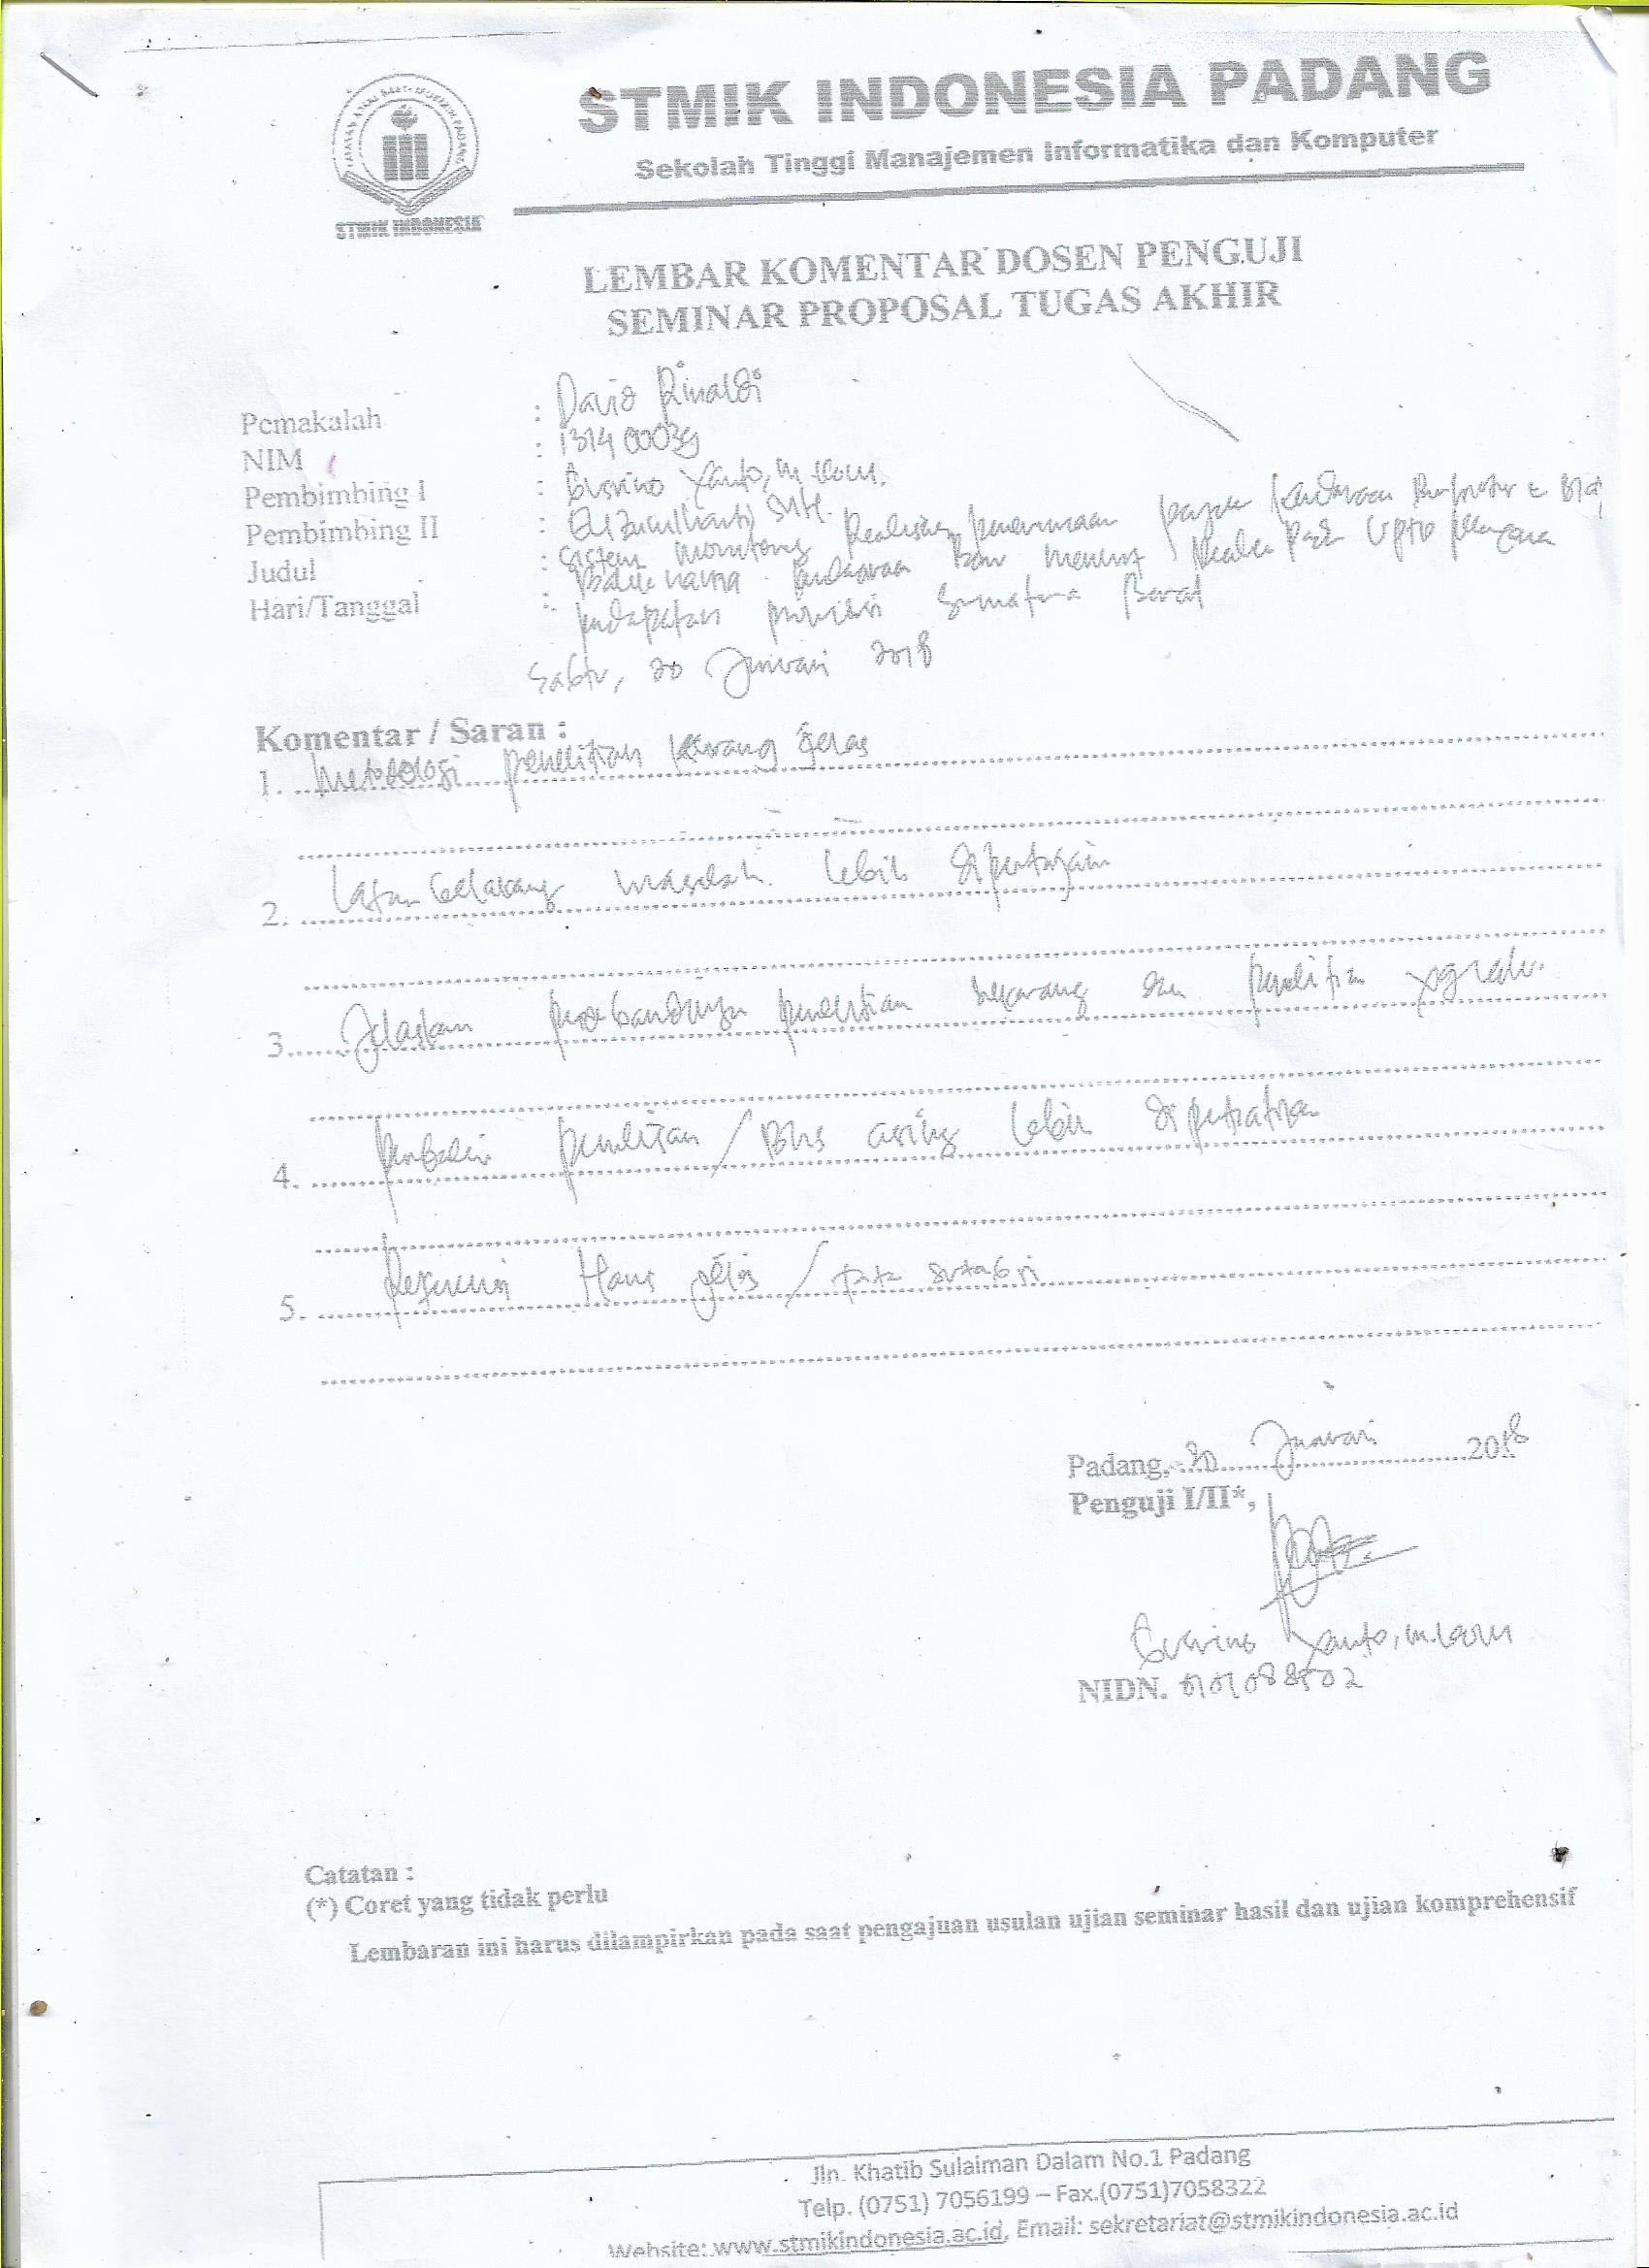 STMIK INDONESIA PADANG
Sekolah Tinggi Manajemen Informatika dan Komputer
STMIK INDONESIA
LEMBAR KOMENTAR DOSEN PENGUJI
SEMINAR PROPOSAL TUGAS AKHIR
Pemakalah : David Rinaldi
NIM : 13140003g
Pembimbing I : Yanto, M.Kom.
Pembimbing II :
Judul : Sistem Monitoring Realisasi penerimaan pajak kendaraan
Balik nama kendaraan Bermotor pada UPTD
pendapatan provinsi Sumatera Barat
Hari/Tanggal : Sabtu, 20 Januari 2018
Komentar / Saran :
1. metodologi penelitian kurang jelas
2. Latar belakang masalah lebih dipertajam
3. Jelaskan perbandingan penelitian sekarang dan penelitian
4. penelitian / Bhs asing lebih
5. Referensi Harus jelas /
Padang, 20 Januari 2018
Penguji I/II*,
Yanto, M.Kom
NIDN. 0101088502
Catatan :
(*) Coret yang tidak perlu
Lembaran ini harus dilampirkan pada saat pengajuan usulan ujian seminar hasil dan ujian komprehensif
Jln. Khatib Sulaiman Dalam No.1 Padang
Telp. (0751) 7056199 – Fax.(0751)7058322
Website: www.stmikindonesia.ac.id, Email: sekretariat@stmikindonesia.ac.id